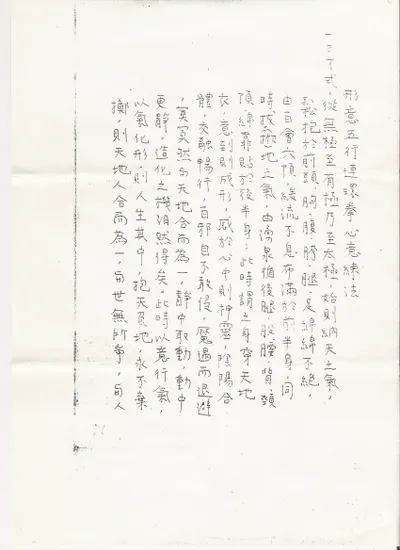 形意五行連環拳心意練法
一三丁式，從無極至有極乃至太極，始則納天之氣，
鬆抱於前頸，胸，腹，胯，腿，足綿綿不絕，
由百會穴頂，緩流不息布滿於前半身，同
時拔擻地之氣，由湧泉循後腿，股，腰，背，頸
頂綿靠貼於後半身；此時謂之身穿天地
衣，意到則成形，感於心中則神靈，陰陽合
體，交融暢行，百邪自不敢侵，魔遇而退避
，冥冥然与天地合而為一，靜中取動，動中
更靜，造化之機泂然得矣。此時以意行氣，
以氣化形則人生其中，抱天負地，永不棄
擲，則天地人合而為一，与世無所爭，与人